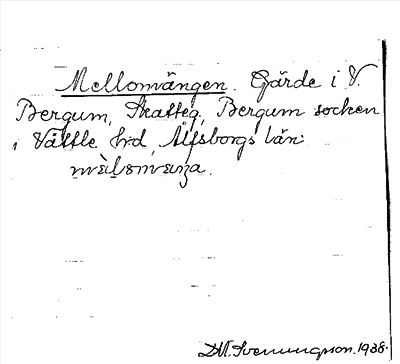 Mellomvängen. Gärde i V.
Bergum, Skatteg., Bergum socken
i Vättle hrd, Älfsborgs län:
D. M. Svenningson. 1938.